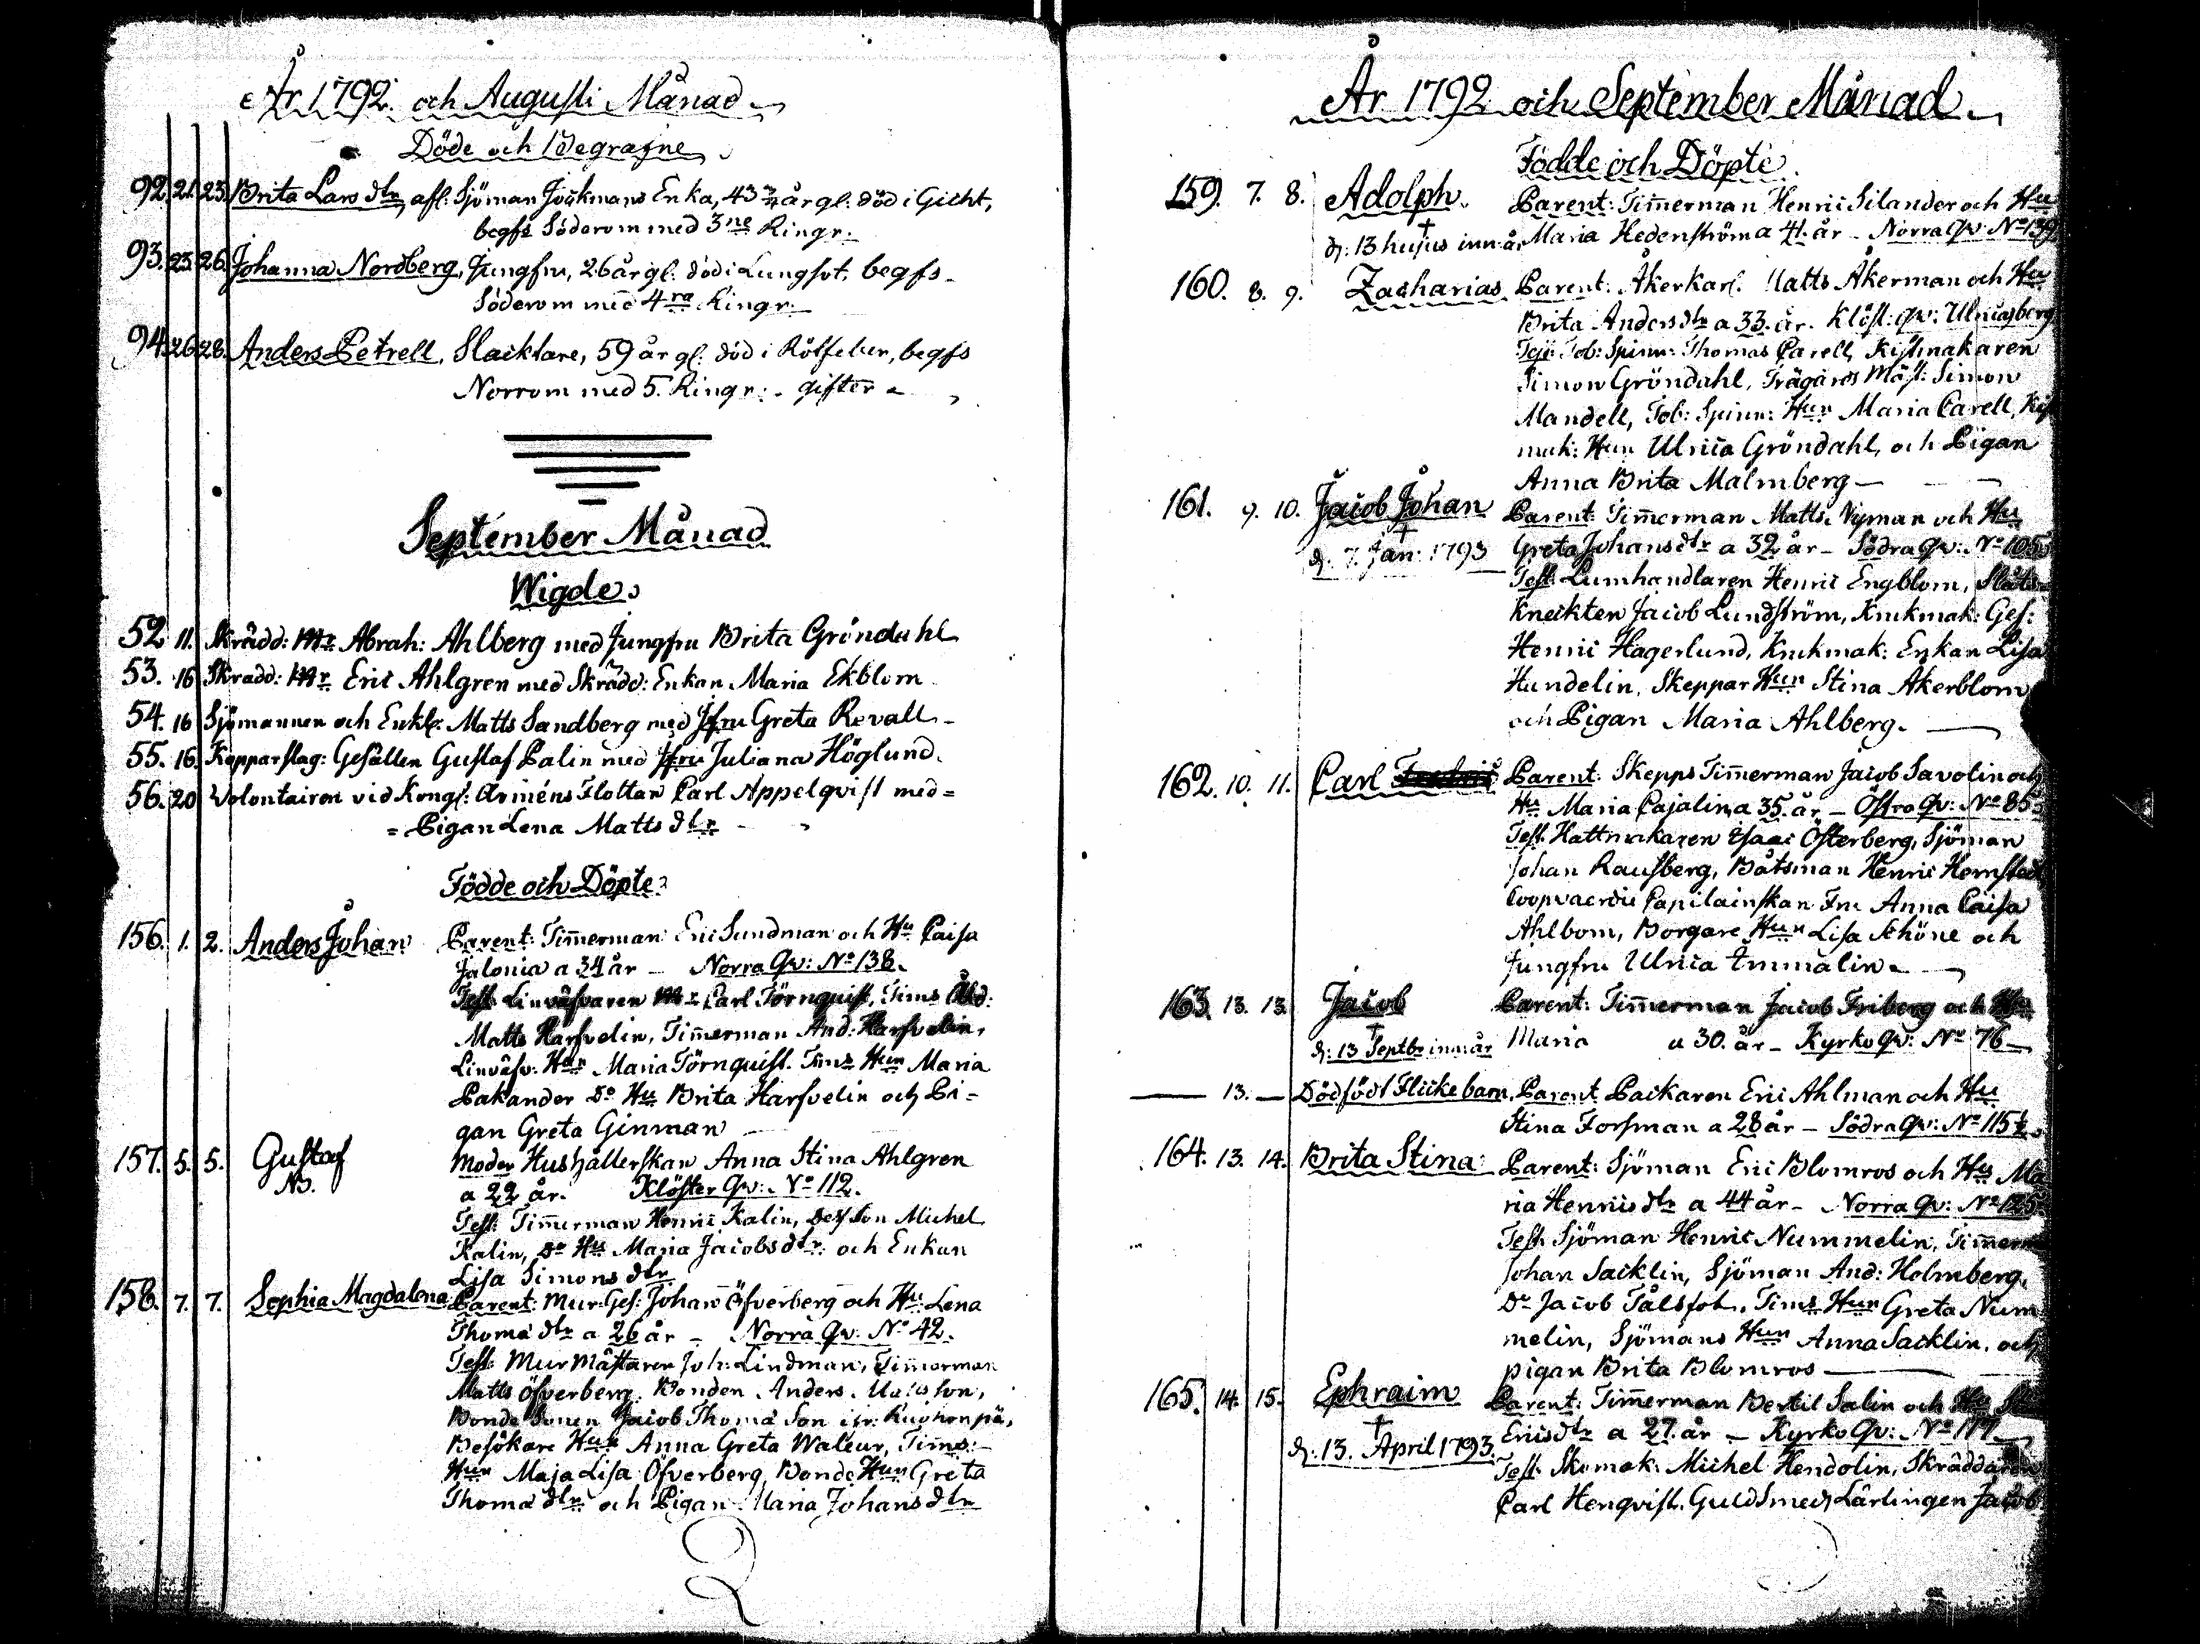 År 1792. och Augusti Månad
Döde och Begrafne
92. 21. 23. Brita Lars dtr, afl. Sjöman Enka, 43 3/4 år gl: död i Gicht,
begfs Söderom med 3ne Ringr.
93. 23. 26. Johanna Nordberg, Jungfru, 26 år gl: död i Lungsot, begfs
Söderom med 4ra Ringr.
94. 26. 28. Anders Petrell, Slacktare, 59 år gl: död i Rötfeber, begfs
Norrom med 5. Ringr: gifter
September Månad
Wigde
52 11. Skrädd: Mr Abrah: Ahlberg med Jungfru Brita Gröndahl
53. 16 Skradd: Mr Eric Ahlgren med Skrädd: Enkan Maria Ekblom
54. 16 Sjömannen och Enkl: Matts Sandberg med Jfru Greta Revall
55. 16. Kopparslag: Gesällen Gustaf Palin med Jfru Juliana Höglund.
56. 20 Volontairen vid Kongl: Arméns Flottan Carl Appelqvist med =
= Pigan Lena Matts dtr
Födde och Döpte
156. 1. 2. Anders Johan Parent: Timerman Eric Sundman och Hu Caisa
Jalonia a 34 år _ Norra Qv: No 138.
Test: Linväfvaren Mr Carl Törnquist, Tims Åld:
Matts Harfvelin, Timerman And: Harfvelin,
Linväfv: Hun Maria Törnquist. Tims Hun Maria
Pakander Do Hu Brita Harfvelin och Pi=
gan Greta Ginman
157. 5. 5. Gustaf Moder Hushållerskan Anna Stina Ahlgren
No. a 22 år. Klöster Qv: No 112.
Test: Timerman Henric Kalin, Dess Son Michel
Kalin, Do Hu Maria Jacobs dtr och Enkan
Lisa Simons dtr
158. 7. 7. Sophia Magdalena Parent: Mur: Ges: Johan Öfverberg och Hu Lena
Thoma dtr a 26 år _ Norra Qv: No 42.
Test: Mur Mästaren Joh: Lindman, Timerman
Matts Öfverberg. Bonden Anders Mats son,
Bonde Sonen Jacob Thoma Son
Besökare Hun Anna Greta Waleur, Tims:
Hun Maja Lisa Öfverberg, Bonde Hun Greta
Thoma dtr och Pigan Maria Johans dtr
År 1792 och September Månad
Födde och Döpte
159. 7. 8. Adolph. Parent: Timerman Henric Silander och Hu
d: 13 hujus inn: år Maria Hedenström a 41. år _ Norra Qv: No 139
160. 8. 9. Zacharias Parent: Åkerkarl. Matts Åkerman och Hu
Brita Anders dtr a 33. år. Klöst: Qv: Ulricasberg
Test: Tob: Spinn: Thomas Carell, Kistmakaren
Simon Gröndahl, Trägårds Mäst: Simon
Mandell, Tob: Spinn: Hun Maria Carell, Kist
mak: Hun Ulrica Gröndahl, och Pigan
Anna Brita Malmberg
161. 9. 10. Jacob Johan Parent: Timerman Matts Nyman och Hu
d. 7. Jan: 1793 Greta Johans dtr a 32 år _ Södra Qv: No 105
Test: Lumhandlaren Henric Engblom, Slåts=
kneckten Jacob Lundström, Krukmak: Ges:
Henric Hagerlund, Krukmak: Enkan Lisa
Hundelin, Skeppar Hun Stina Åkerblom
och Pigan Maria Ahlberg.
162. 10. 11. Carl Parent: Skepps Timerman Jacob Savolin och
Hu Maria Cajalin a 35. år _ Östra Qv: No 85
Test: Hattmakaren Isaac Österberg, Sjöman
Johan Rausberg, Båtsman Henric Hernstedt
Coopvaerdie Capitainskan Fru Anna Caisa
Ahlbom, Borgare Hun Lisa Schöne och
Jungfru Ulrica Ammalin
163. 13. 13. Jacob Parent: Timerman Jacob Friberg och Hu
d: 13 Septbr inn: år Maria a 30. år _ Kyrko Qv: No 76
13. Dödfödt Flickebarn, Parent: Packaren Eric Ahlman och Hu
Stina Forsman a 28 år _ Södra Qv: No 115 1/2
164. 13. 14. Brita Stina Parent: Sjöman Eric Blomros och Hu Ma
ria Henrics dtr a 44 år _ Norra Qv: No 125
Test: Sjöman Henric Nummelin, Timerm
Johan Sacklin, Sjöman And: Holmberg,
Do Jacob Tålsfot, Tims Hun Greta Num
melin, Sjömans Hun Anna Sacklin. och
pigan Brita Blomros
165. 14. 15. Ephraim Parent: Timerman Bertil Salin och Hu
d: 13. April 1793. Erics dtr a 27. år _ Kyrko Qv: No 117
Test: Skomak: Michel Hendolin, Skräddaren
Carl Henqvist, Guldsmeds Lärlingen Jacob